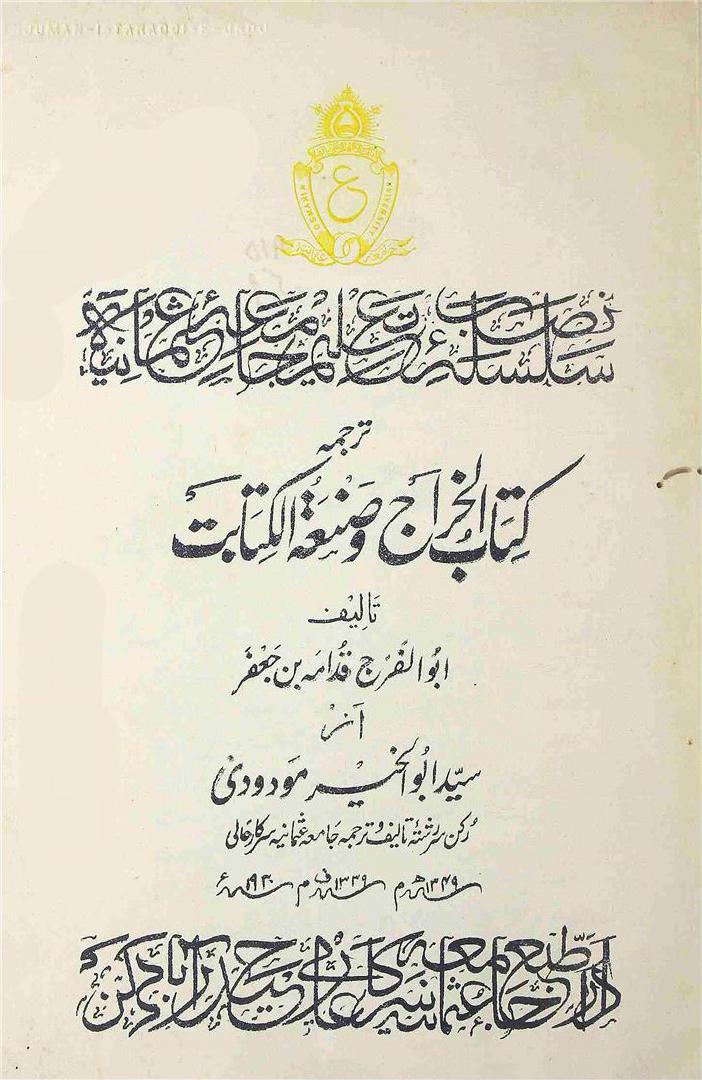 ANJUMAN-I-TARAQQI-E-URDU
ع
OSMANIA UNIVERSITY
سلسلۂ نصاب تعلیم جامعۂ عثمانیہ
ترجمہ
کتاب الخراج و صنعۃ الکتابت
تالیف
ابو الفرج قدامہ بن جعفر
از
سید ابو الخیر مودودی
رکن سررشتۂ تالیف و ترجمہ جامعہ عثمانیہ سرکار عالی
۱۳۴۹ھ م ۱۳۳۹ف م ۱۹۳۰ء
دار الطبع جامعہ عثمانیہ سرکار عالی حیدرآباد دکن